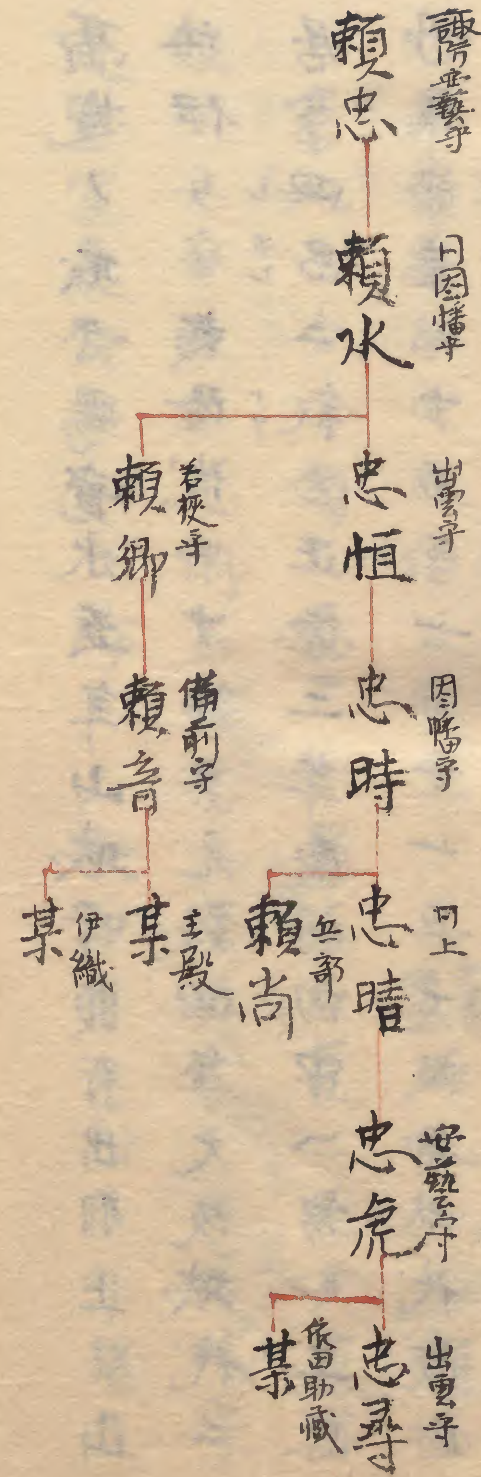 諏訪安藝守
賴忠
同因幡守
賴水
出雲守
忠恒
因幡守
忠時
同上
忠晴
安藝守
忠虎
出雲守
忠尋
依田助藏
某
兵部
賴尚
若狹守
賴鄉
備前守
賴音
主殿
某
伊織
某